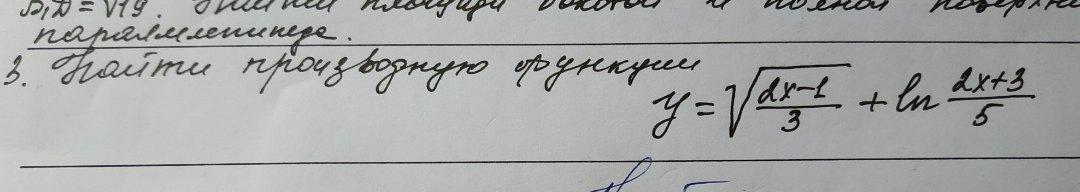 B₁D = √19. Найти площади боковой и полной поверхн
параллелепипеда.
3. Найти производную функции
y = √((2x-1)/3) + ln (2x+3)/5